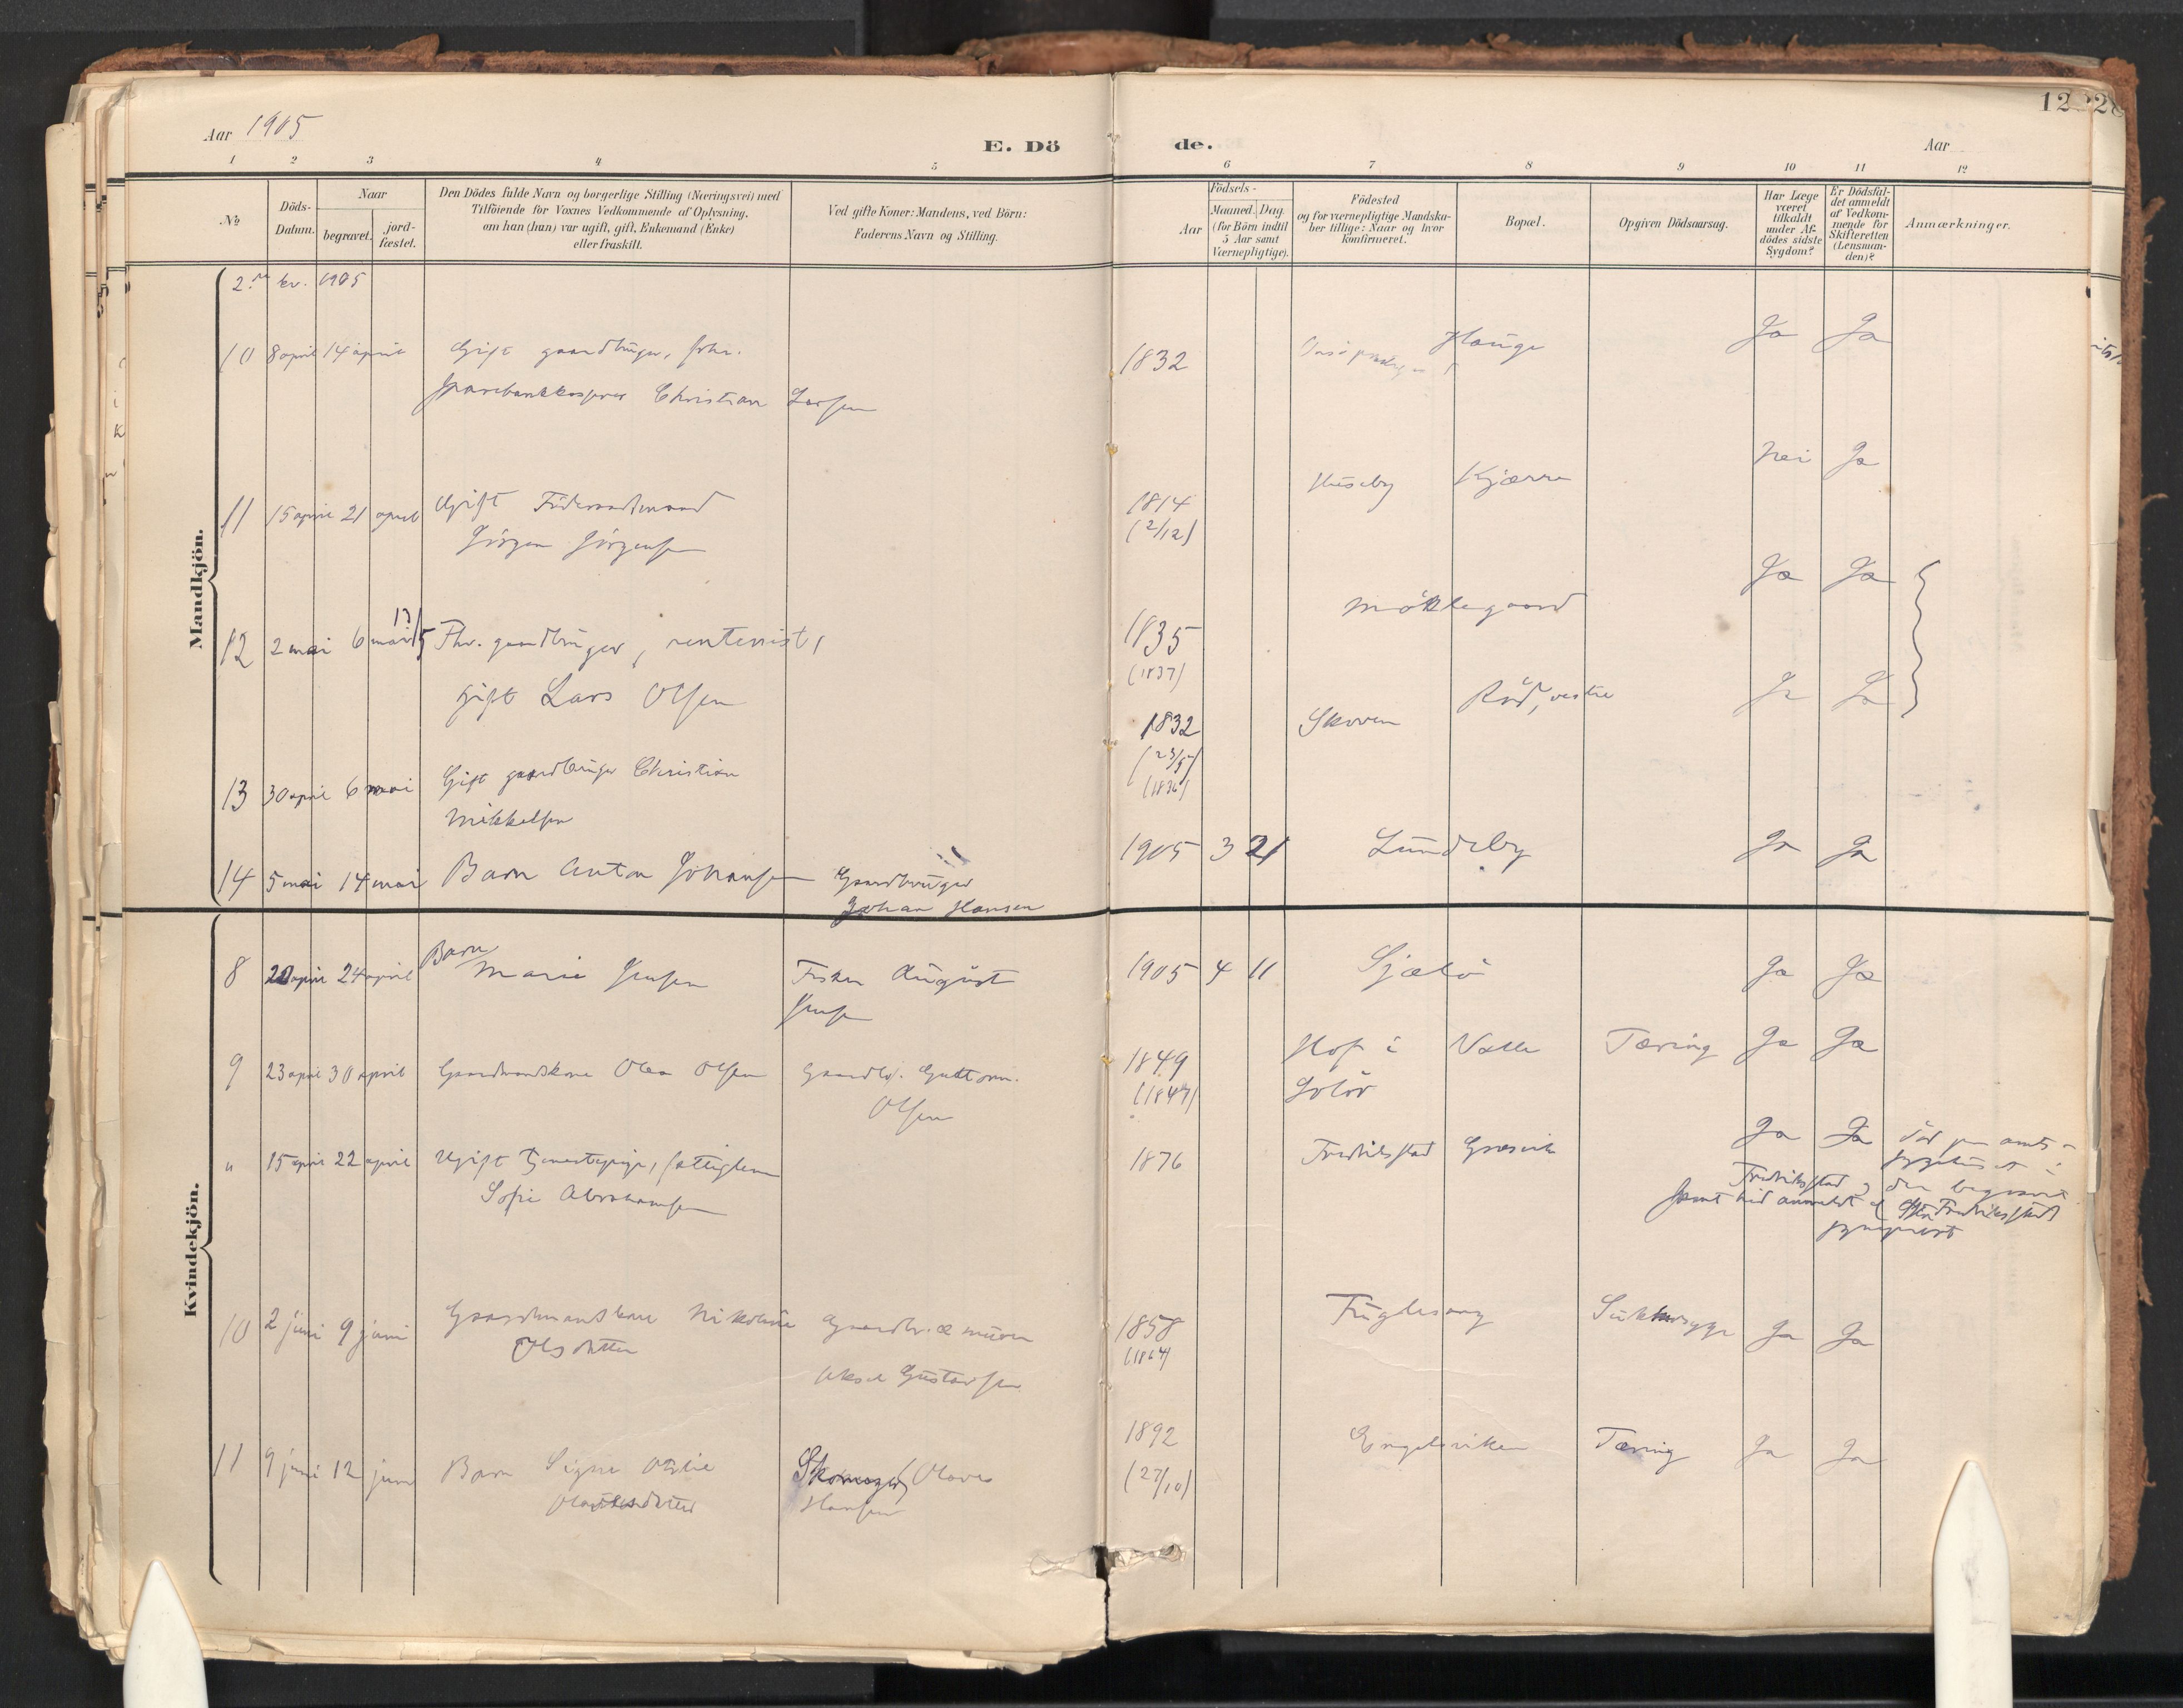 Aar 1905
E. Dö
de.
Aar
12
1 2 3 4 5 6 7 8 9 10 11 12
No
Döds-
Datum.
Naar
begravet.
jord-
fæstet.
Den Dödes fulde Navn og borgerlige Stilling (Næringsvei) med
Tilföiende for Voxnes Vedkommende af Oplysning,
om han (hun) var ugift, gift, Enkemand (Enke)
eller fraskilt.
Ved gifte Koner: Mandens, ved Börn:
Faderens Navn og Stilling.
Aar
Födsels-
Maaned. Dag.
(for Börn indtil
5 Aar samt
Værnepligtige).
Födested
og for værnepligtige Mandska-
ber tillige: Naar og hvor
konfirmeret.
Bopæl.
Opgiven Dödsaarsag.
Har Læge
været
tilkaldt
under Af-
dödes sidste
Sygdom?
Er Dödsfal-
det anmeldt
af Vedkom-
mende for
Skifteretten
(Lensman-
den)?
Anmærkninger.
Mandkjön.
2 kv. 1905
10 8 april 14 april Gift gaardbruger, fhv.
Sparebankkasserer Christian Larsen
1832 Hauge Ja Ja
11 15 april 21 april Ugift Föderaadsmand
Jörgen Jörgensen
1814 Huseby Kjærre Nei Ja
(2/12)
12 2 mai 6 mai 13/5 Fhv. gaardbruger, rentenist,
gift Lars Olsen
1835 Möklegaard Ja Ja
(1837)
13 30 april 6 mai Gift gaardbruger Christian
Mikkelsen
1832 Skoven Röd, vestre Ja Ja
(23/5)
(1836)
14 5 mai 14 mai Barn Anton Johansen Gaardbruger
Johan Hansen
1905 3 21 Lundeby Ja Ja
Kvindekjön.
8 20 april 24 april Barn Marie Jensen Fisker August
Jensen
1905 4 11 Sjælö Ja Ja
9 23 april 30 april Gaardmandskone Olea Olsen Gaardbr. Guttorm
Olsen
1849 Hof i Valle Tæring Ja Ja
(1847) Solör
" 15 april 22 april Ugift tjenestepige, fattiglem
Sofie Abrahamsen
1876 Fredriksstad Græsvik Ja Ja död paa amts-
sygehuset i
Fredriksstad og der begravet
samt hid anmeldt af Fredriksstad
sogneprest
10 2 juni 9 juni Gaardmandskone Nikoline Gaardbr. & murer
Olsdatter
Aksel Gustavsen
1858 Fuglesang Sukkersyge Ja Ja
(1864)
11 9 juni 12 juni Barn Signe Otilie Skomager Olaves
Olavesdatter Hansen
1892 Engelsviken Tæring Ja Ja
(27/10)